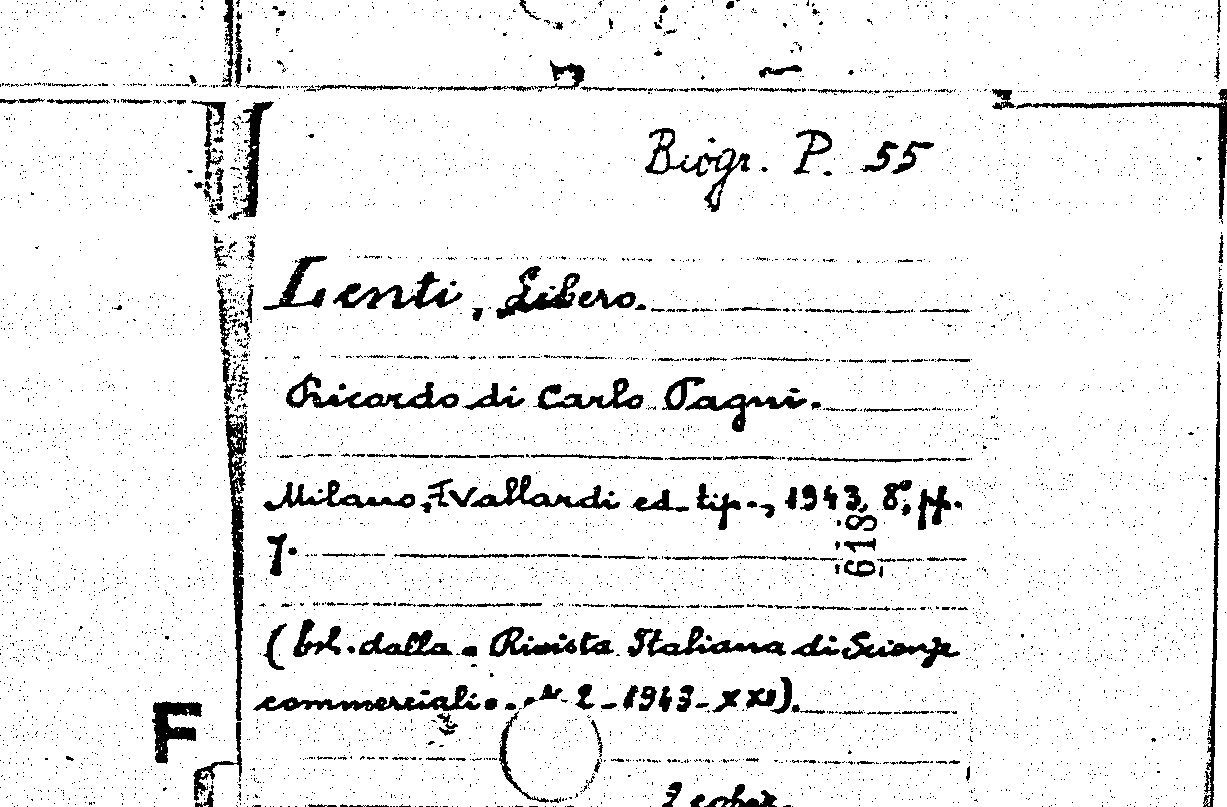 Biogr. P. 55
Lenti, Libero.
Ricordo di Carlo Pagni.
Milano, F. Vallardi ed. tip., 1943, 8°, pp.
7.
618
( Estr. dalla « Rivista Italiana di Scienze
commerciali ». N 2 - 1943 - XXI).
F
2 copie.